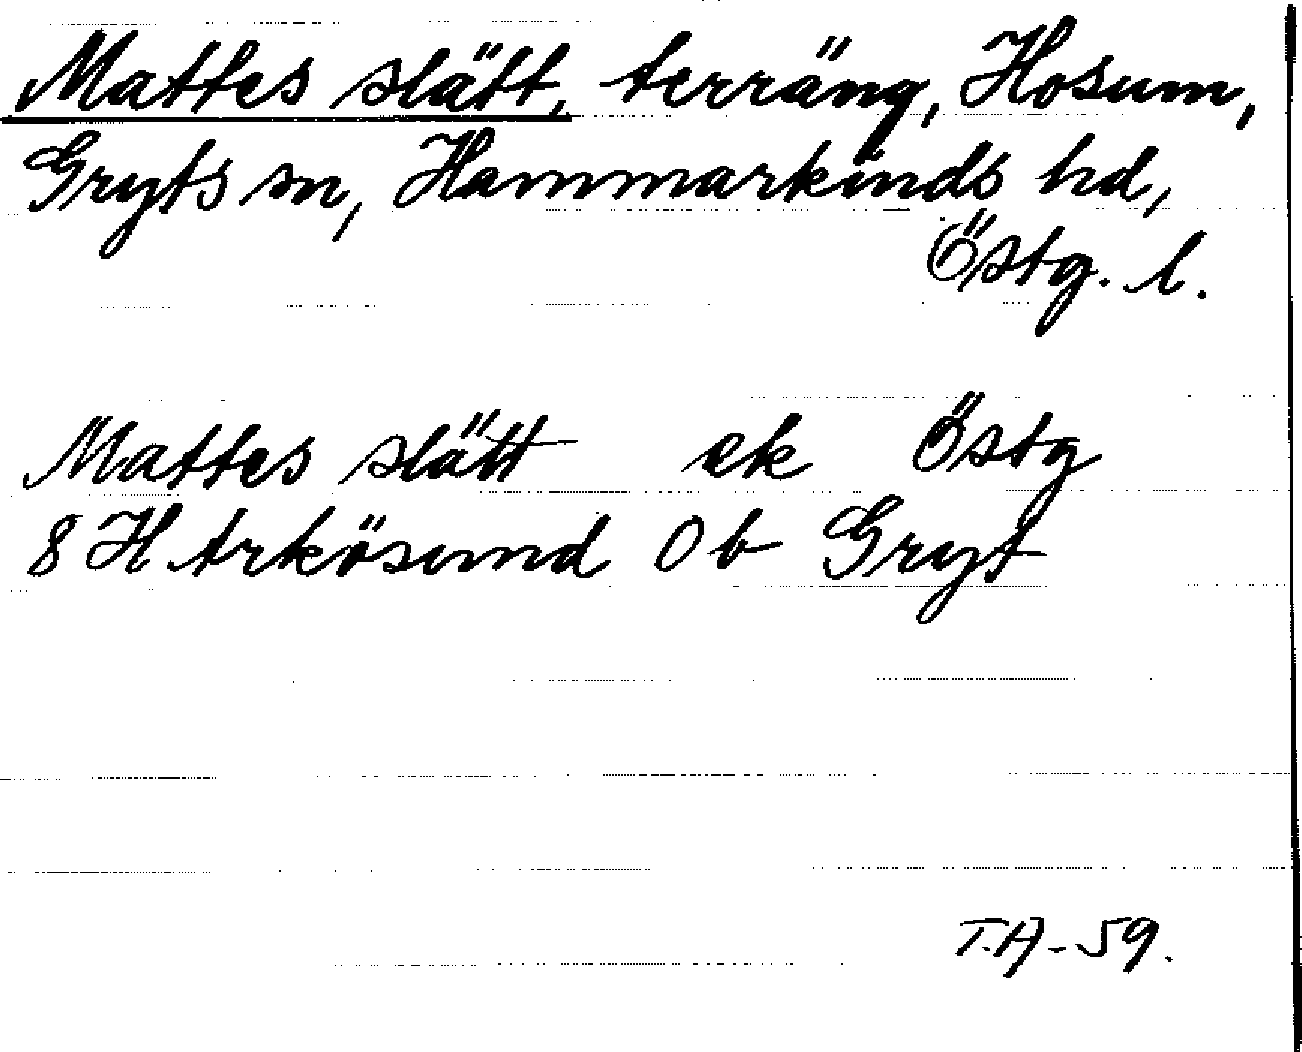 Mattes slätt, terräng, Hosum,
Gryts sn, Hammarkinds hd,
Östg. l.
Mattes slätt ek Östg
8 H Arkösund 0 b Gryt
T.A-59.